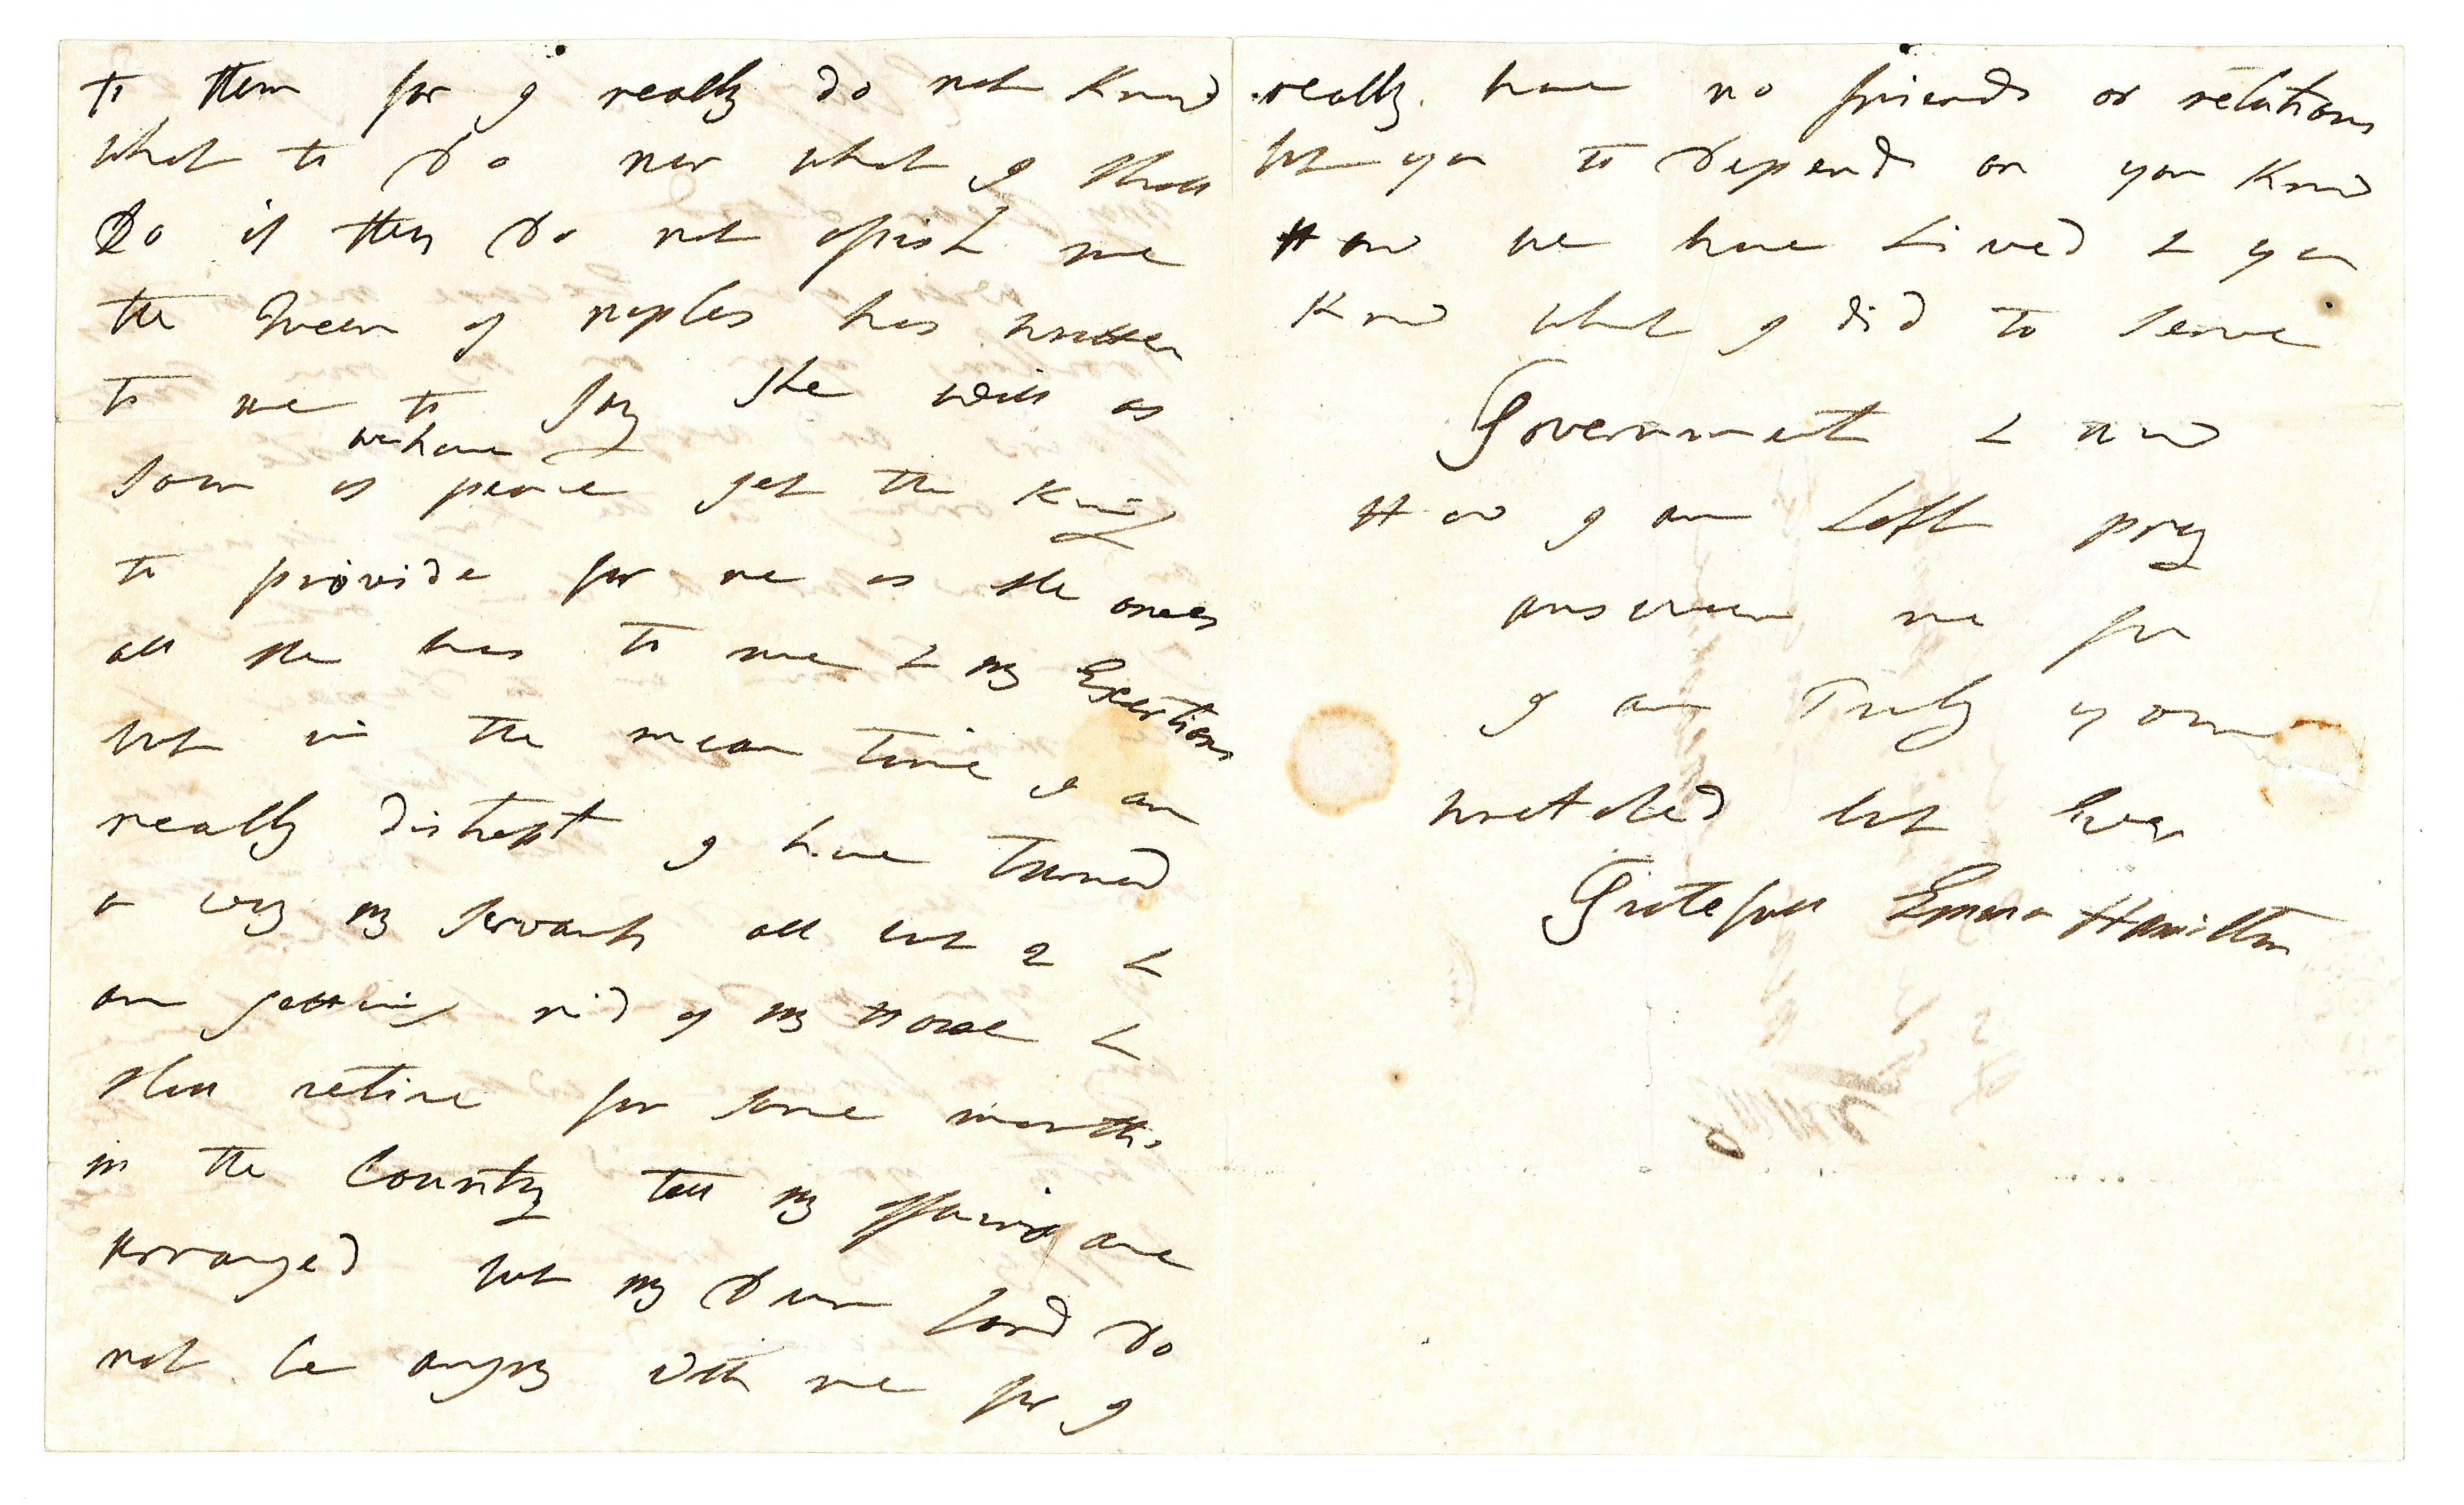 to them for I really do not Know
what to Do nor what I shall
Do if they Do not assist me
the Queen of naples has written
to me to say she will as
we have
soon as peace get the King
to provide for me as she owes
all she has to me & my Exertions
but in the mean time I am
really distrest I have Turned
a way my servants all but 2 &
am getting rid of my House &
shall retire for some months
in the Country till my affairs are
Arranged but my Dear Lord Do
not be angry with me for I
really have no friends or relations
but you to Depend on you Know
How we have Lived & you
Know what I did to serve
Government & now
How I am Left pray
answer me for
I am Truly your
wretched but Ever
Gratefull Emma Hamilton